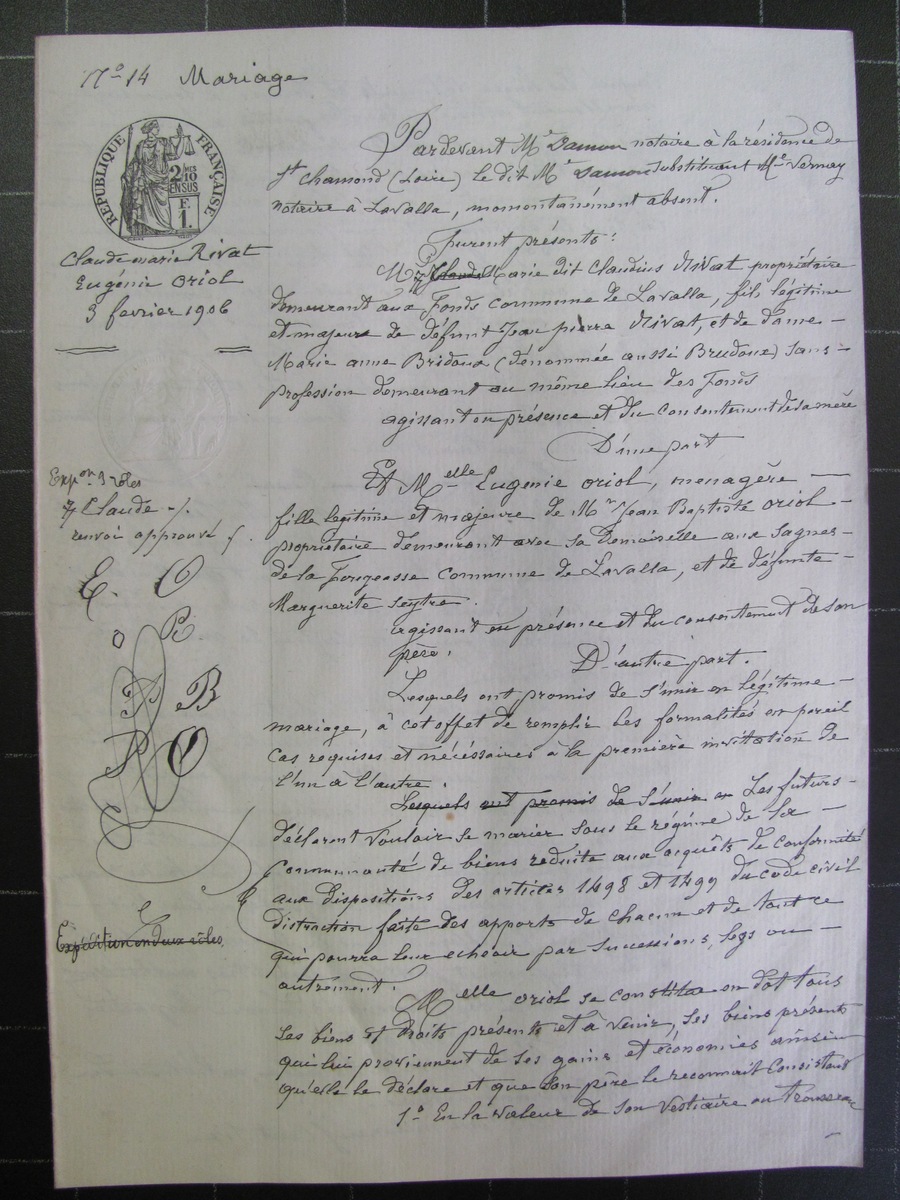 N° 14 Mariage
RÉPUBLIQUE FRANÇAISE
2/10 MES
EN SUS
F.
1.
Claude marie Rivat
Eugénie oriol
3 fevrier 1906
Pardevant Me Damon notaire à la résidence de
St Chamond (Loire) le dit Me Damon substituant Me Vernay
notaire à Lavalla, momentanément absent.
Furent présents:
Mr Claude Marie dit Claudius Rivat propriétaire
demeurant aux Fonds commune de Lavalla, fils légitime
et majeur de défunt Jean pierre Rivat, et de dame
Marie anne Bridoux (dénommée aussi Brudoux) sans
profession demeurant au même lieu des Fonds
agissant en présence et du consentement de sa mère
D'une part
Et Melle Eugénie oriol, menagère
fille legitime et majeure de Mr Jean Baptiste oriol
propriétaire demeurant avec sa demoiselle aux Sagnes
de la Fougeasse commune de Lavalla, et de défunte
Marguerite Seytre.
agissant en présence et du consentement de son
père.
D'autre part.
Lesquels ont promis de s'unir en légitime
mariage, à cet effet de remplir les formalités en pareil
cas requises et nécessaires à la première invitation de
l'un à l'autre.
Lesquels ont promis de s'unir en Les futurs
déclarent vouloir se marier sous le régime de la
Communauté de biens reduite aux acquêts de conformité
aux dispositions des articles 1498 et 1499 du code civil
distraction faite des apports de chacun et de tout ce
qui pourra leur echeoir par successions, legs ou
autrement.
Melle oriol se constitue en dot tous
ses biens et droits présents et à venir, ses biens présents
qui lui proviennent de ses gains et économies ainsi
qu'elle le déclare et que son père le reconnait Consistant
1° En la valeur de son vestiaire ou trousseau
Expon 3 rôles
Claude
renvoi approuvé
E. O
B
B
R O
Expédition en deux rôles